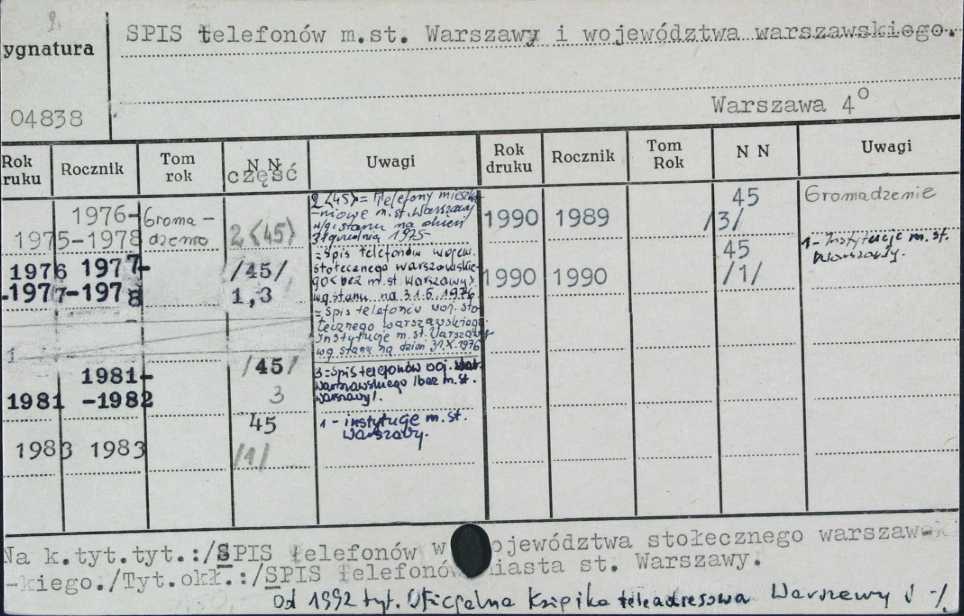 ygnatura
04838
SPIS telefonów m.st. Warszawy i województwa warszawskiego.
Warszawa 4°
Rok ruku Rocznik Tom rok N N część Uwagi Rok druku Rocznik Tom Rok N N Uwagi
1976-
1975-1978 Groma-dzenie 2<45>
2<45> = Telefony
m.st. Warszawy
wg stanu na dzień
1975
1976 1977- /45/
-1977-1978 1,3
= Spis telefonów wojew.
stołecznego warszawskie-
go <bez m.st. Warszawy>
wg stanu na 31.5.1976
= Spis telefonów woj. sto-
łecznego warszawskiego
instytucje m.st. Warszawy
wg stanu na dzień 31.X.1976
1
1981- /45/
1981 -1982 3
3=Spis telefonów woj.
warszawskiego /bez m.st.
Warszawy/.
45
1983 1983 /1/
1 - instytucje m.st.
Warszawy.
45
1990 1989 /3/ Gromadzenie
45
1990 1990 /1/
1- Instytucje m.st.
Warszawy.
Na k.tyt.tyt.:/SPIS telefonów w ojewództwa stołecznego warszaws-
-kiego./Tyt.okł.:/SPIS telefonów miasta st. Warszawy.
Od 1992 tyt. Oficjalna Książka teleadresowa Warszawy